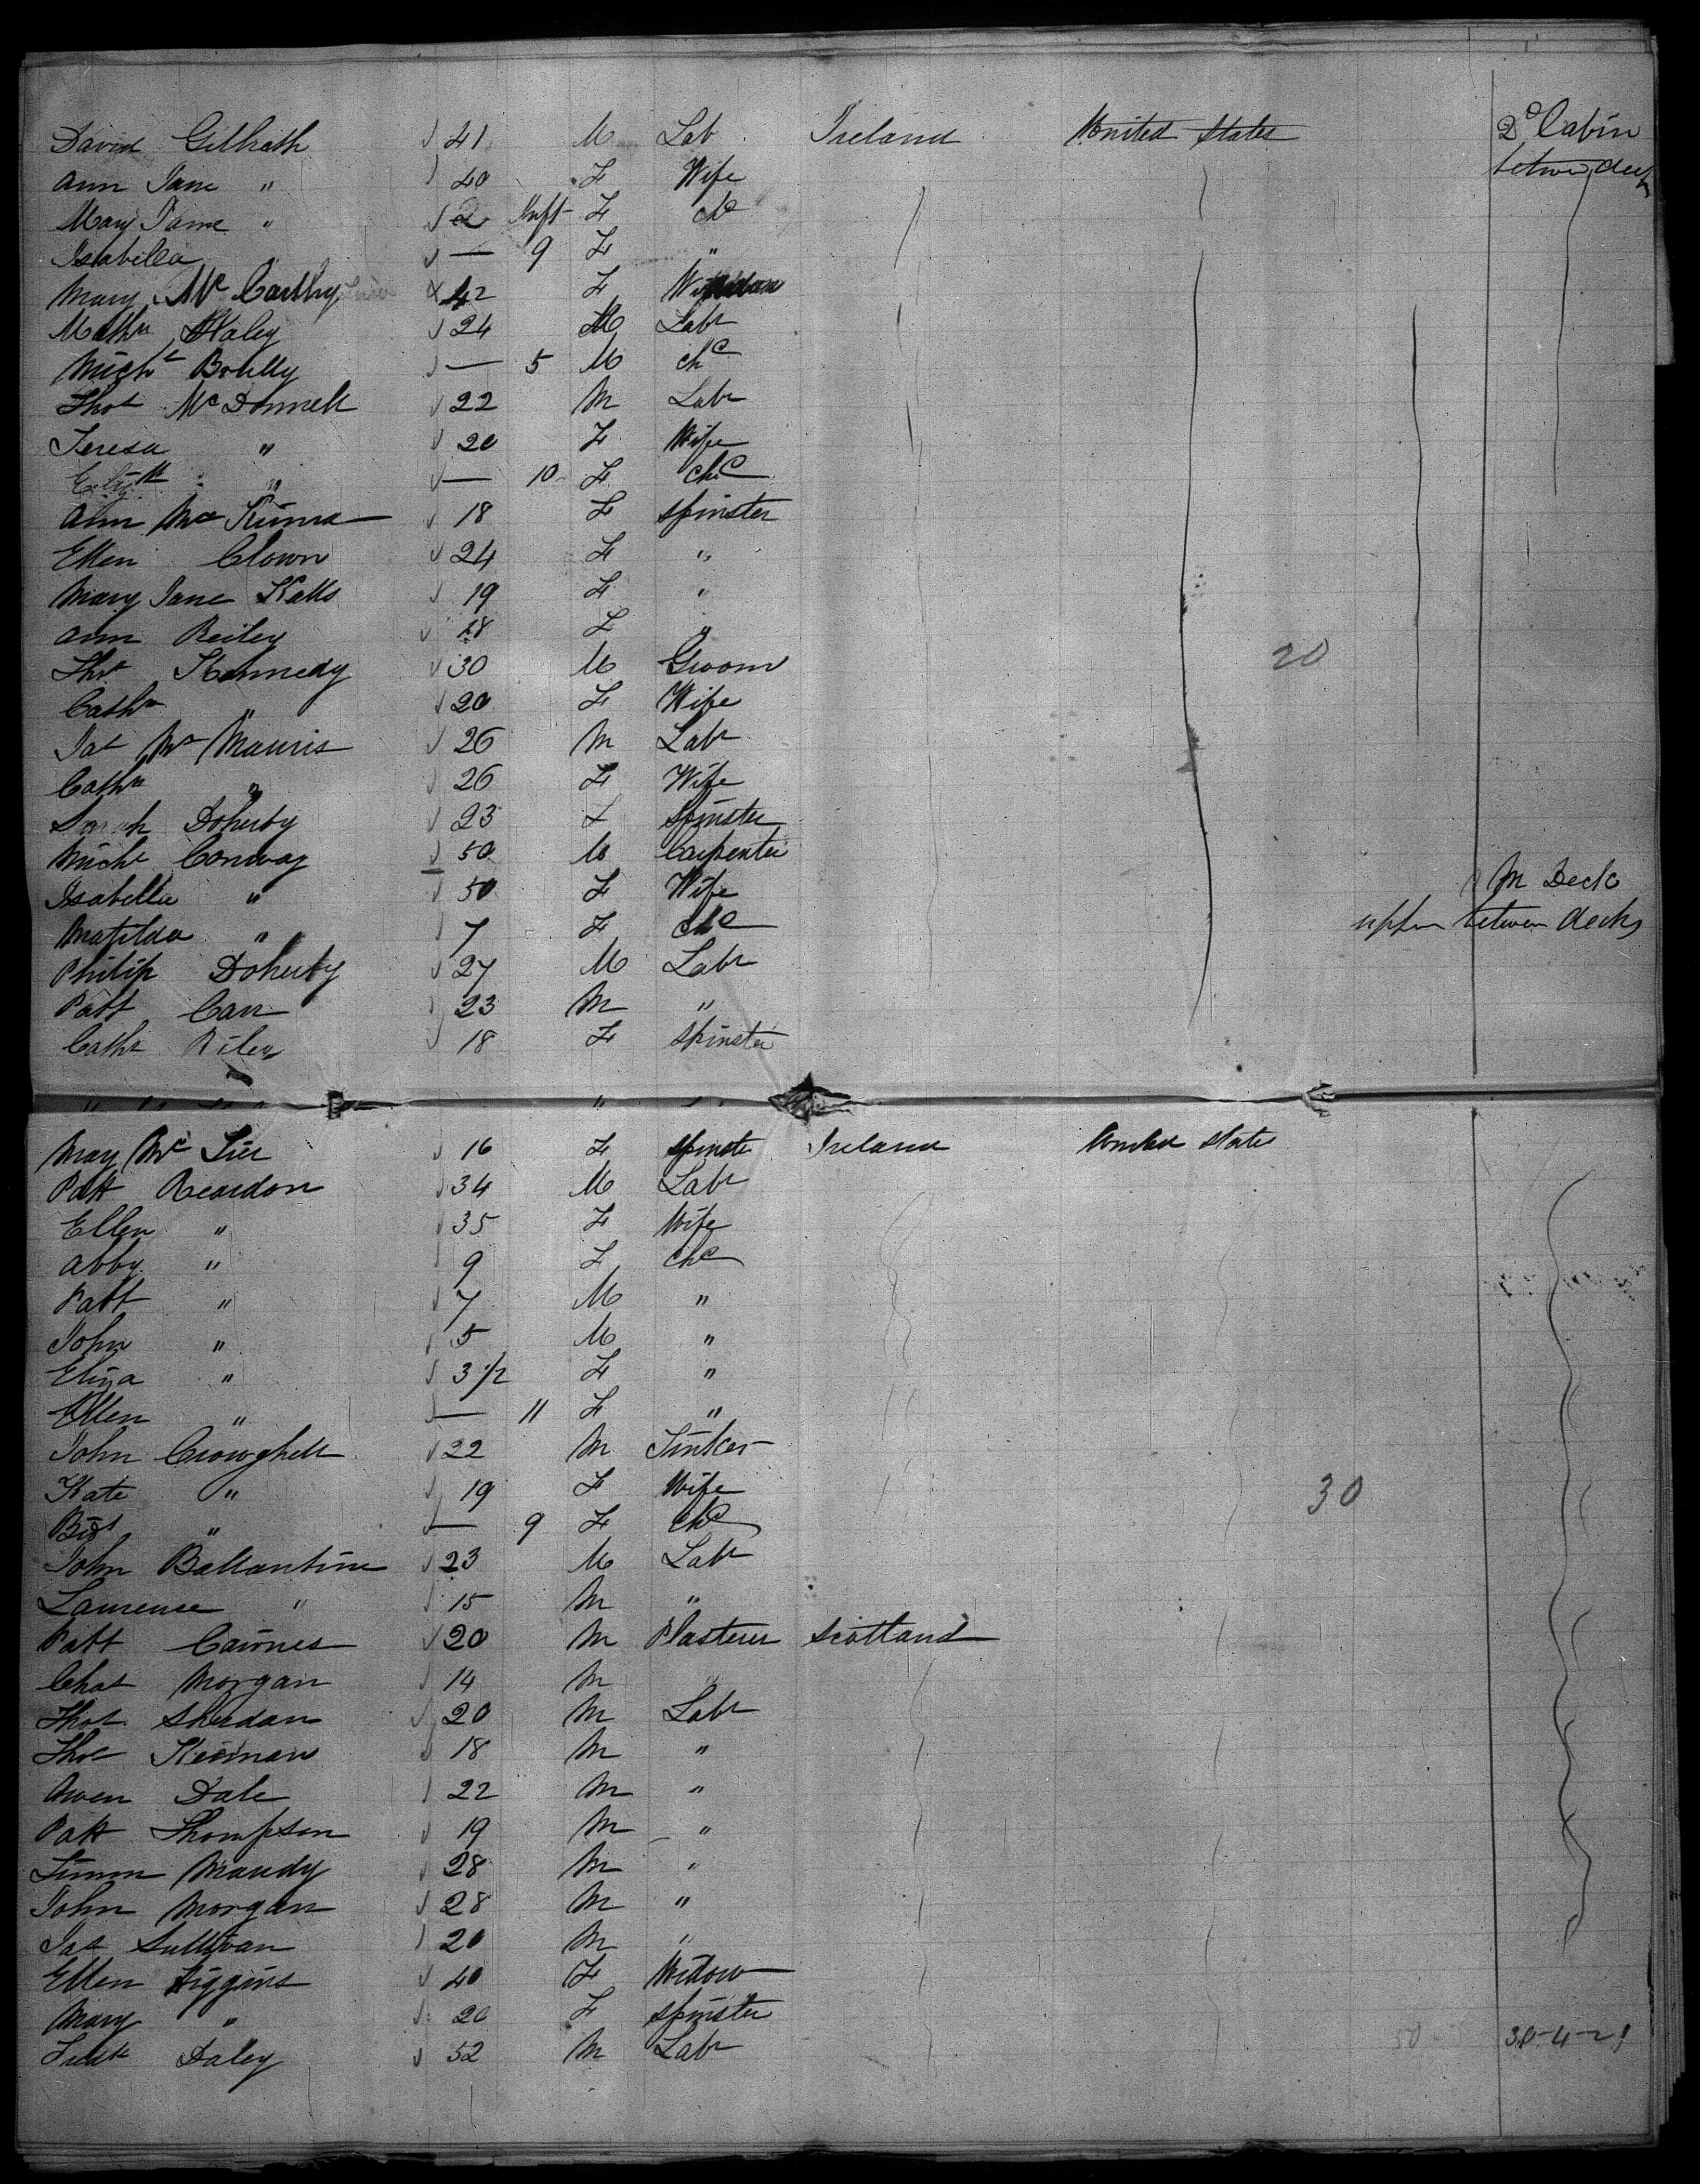 David Gilhath 41 M Lab Ireland United States 2d Cabin
Ann Jane " 40 F Wife between deck
Mary Jane " 2 Inft F chd
Isabella " — 9 F "
Mary Mc Carthy 42 F
Mathw Haley 24 M Labr
Michl Bolilly — 5 M chd
Thos McDonnell 22 M Labr
Teresa " 20 F Wife
Elizth " — 10 F chd
Ann Mc 18 F spinster
Ellen Clown 24 F "
Mary Jane Kells 19 F "
Ann Reiley 18 F "
Thos Kennedy 30 M Groom 20
Cathn " 20 F Wife
Jas Mc Mauris 26 M Labr
Cathn " 26 F Wife
Sarah Doherty 23 F Spinster
Michl Conway 50 M Carpenter
Isabella " 50 F Wife M Deck
Matilda " 7 F chd upper between decks
Philip Doherty 27 M Labr
Patt Carr 23 M "
Cathn Riley 18 F Spinster
May Mc 16 F Spinster Ireland United States
Patt Reardon 34 M Labr
Ellen " 35 F Wife
Abby " 9 F chd
Patt " 7 M "
John " 5 M "
Eliza " 3 1/2 F "
Ellen " — 11 F "
John Croughell 22 M Tinker
Kate " 19 F Wife 30
Bidt " — 9 F chd
John Ballantine 23 M Labr
Laurence " 15 M "
Patt Cairnes 20 M Plasterer Scotland
Chas Morgan 14 M "
Thos Sheridan 20 M Labr
Thos Kiernan 18 M "
Owen Dale 22 M "
Patt Thompson 19 M "
Simon Mandy 28 M "
John Morgan 28 M "
Jas Sullivan 20 M "
Ellen Higgins 40 F Widow
Mary " 20 F Spinster
Fredk Daley 52 M Labr 50